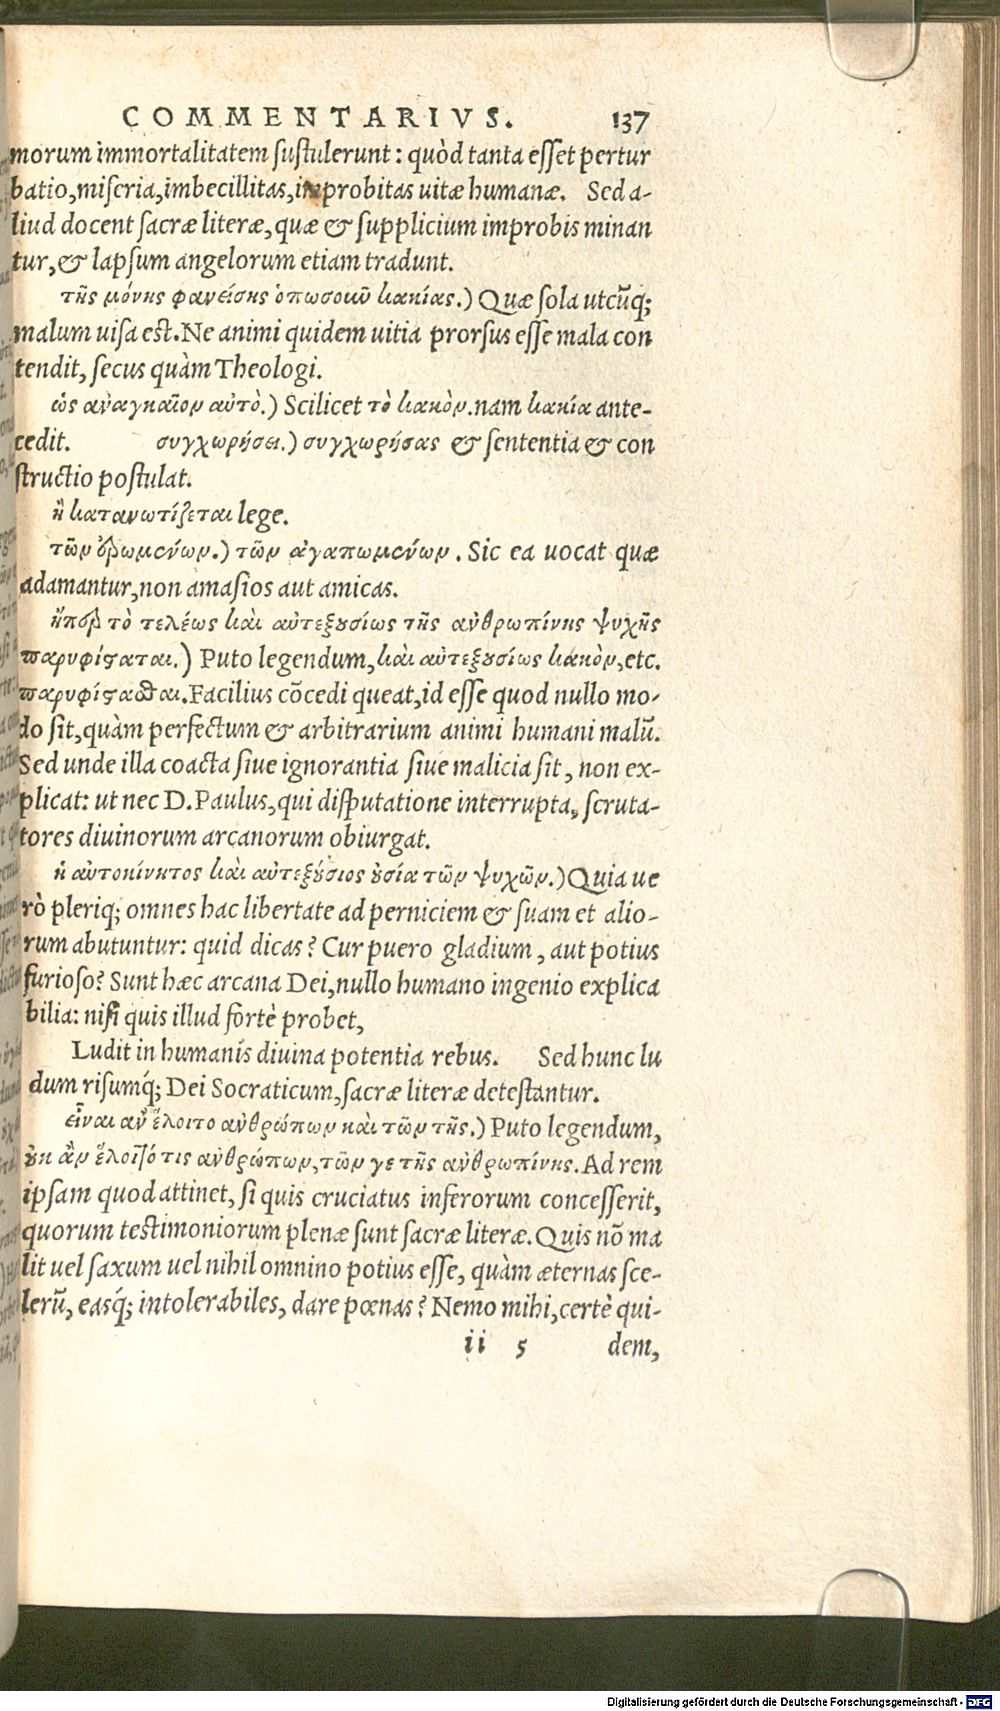 COMMENTARIVS. 137
morum immortalitatem sustulerunt: quòd tanta esset pertur
batio, miseria, imbecillitas, improbitas uitæ humanæ. Sed a-
liud docent sacræ literæ, quæ & supplicium improbis minan
tur, & lapsum angelorum etiam tradunt.
τῆς μόνης φανείσης ὁπωσοιῦ κακίας.) Quæ sola utcũq;
malum uisa est. Ne animi quidem uitia prorsus esse mala con
tendit, secus quàm Theologi.
ὡς ἀναγκαῖον αὐτὸ.) Scilicet τὸ κακὸν. nam κακία ante-
cedit. συγχωρήσει.) συγχωρήσας & sententia & con
structio postulat.
ἢ κατανωτίζεται lege.
τῶν ὁρωμένων.) τῶν ἀγαπωμένων. Sic ea uocat quæ
adamantur, non amasios aut amicas.
ἤπερ τὸ τελέως καὶ αὐτεξουσίως τῆς ἀνθρωπίνης ψυχῆς
παρυφίσαται.) Puto legendum, καὶ αὐτεξουσίως κακὸν, etc.
παρυφίσαθαι. Facilius cõcedi queat, id esse quod nullo mo-
do sit, quàm perfectum & arbitrarium animi humani malũ.
Sed unde illa coacta siue ignorantia siue malicia sit, non ex-
plicat: ut nec D. Paulus, qui disputatione interrupta, scruta-
tores diuinorum arcanorum obiurgat.
ἡ αὐτοκίνητος καὶ αὐτεξούσιος οὐσία τῶν ψυχῶν.) Quia ue
rò pleriq; omnes hac libertate ad perniciem & suam et alio-
rum abutuntur: quid dicas? Cur puero gladium, aut potius
furioso? Sunt hæc arcana Dei, nullo humano ingenio explica
bilia: nisi quis illud fortè probet,
Ludit in humanis diuina potentia rebus. Sed hunc lu
dum risumq́; Dei Socraticum, sacræ literæ detestantur.
εἶναι ἂν ἕλοιτο ἀνθρώπων καὶ τῶν τῆς.) Puto legendum,
οὐκ ἂν ἕλοιτό τις ἀνθρώπων, τῶν γε τῆς ἀνθρωπίνης. Ad rem
ipsam quod attinet, si quis cruciatus inferorum concesserit,
quorum testimoniorum plenæ sunt sacræ literæ. Quis nõ ma
lit uel saxum uel nihil omnino potius esse, quàm æternas sce-
lerũ, easq́; intolerabiles, dare pœnas? Nemo mihi, certè qui-
ii 5 dem,
Digitalisierung gefördert durch die Deutsche Forschungsgemeinschaft - DFG